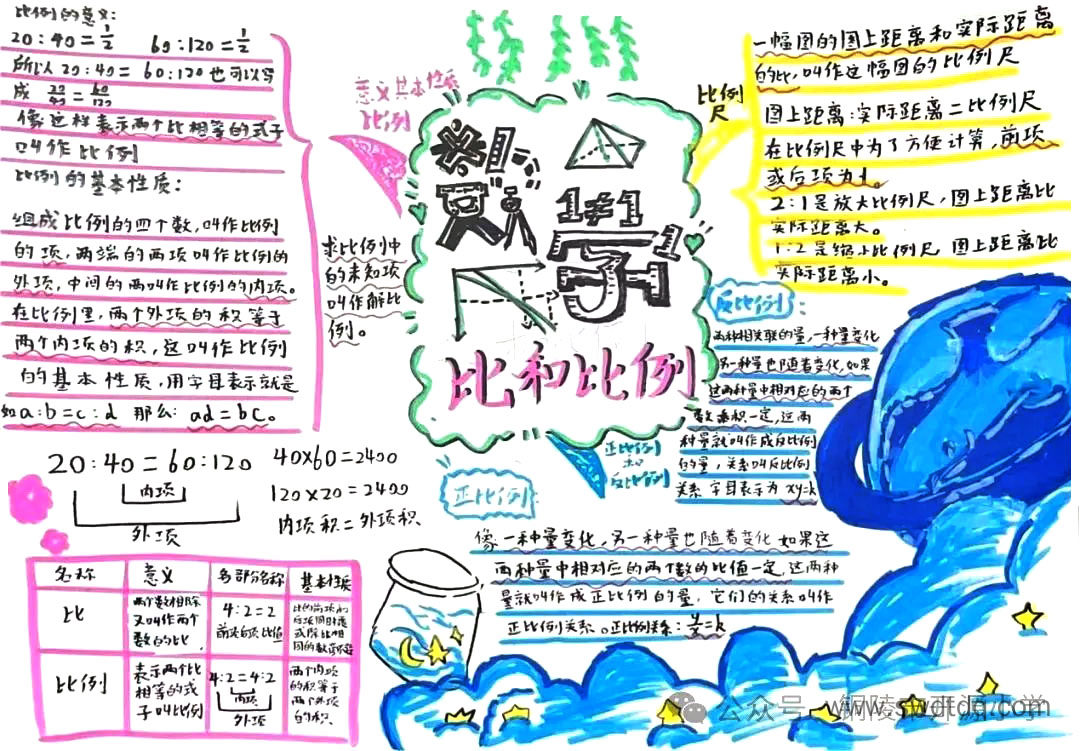 比例的意义:
20:40=1/2 60:120=1/2
所以20:40=60:120也可以写
成 20/40=60/120
像这样表示两个比相等的式子
叫作比例
比例的基本性质:
组成比例的四个数,叫作比例
的项,两端的两项叫作比例的
外项,中间的两叫作比例的内项。
在比例里,两个外项的积等于
两个内项的积,这叫作比例
的基本性质,用字母表示就是
如a:b=c:d 那么:ad=bc。
意义基本性质
比例
求比例中
的未知项
叫作解比
例。
1≠1
学
1
比和比例
比例
尺
一幅图的图上距离和实际距离
的比,叫作这幅图的比例尺
图上距离:实际距离=比例尺
在比例尺中为了方便计算,前项
或后项为1。
2:1是放大比例尺,图上距离比
实际距离大。
1:2是缩小比例尺,图上距离比
实际距离小。
反比例:
两种相关联的量,一种量变化
另一种量也随着变化,如果
这两种量中相对应的两个
数乘积一定,这两
种量就叫作成反比例
的量,关系叫反比例
关系 字母表示为 xy=k
正比例
和
反比例
正比例:
像一种量变化,另一种量也随着变化 如果这
两种量中相对应的两个数的比值一定,这两种
量就叫作成正比例的量,它们的关系叫作
正比例关系。正比例关系:y/x=k
20:40=60:120
内项
外项
40×60=2400
120×20=2400
内项积=外项积
名称 意义 各部分名称 基本性质
比
两个数相除
又叫作两个
数的比
4:2=2
前项后项比值
比的前项和
后项同时乘
或除以相
同的数
比例
表示两个比
相等的式
子叫比例
4:2=4:2
内项
外项
两个内项
的积等于
两个外项
的积。
公众号
铜陵市开源小学
www.swdtdq.com